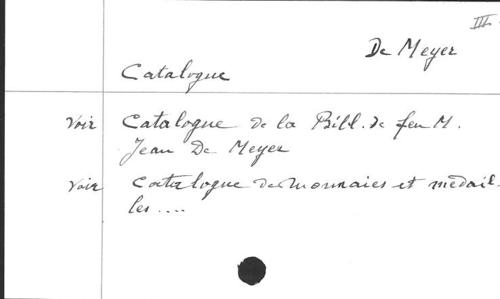 III.
De Meyer
Catalogue
Voir Catalogue de la Bibl. de feu M.
Jean De Meyer
Voir Catalogue des monnaies et médail-
les ....